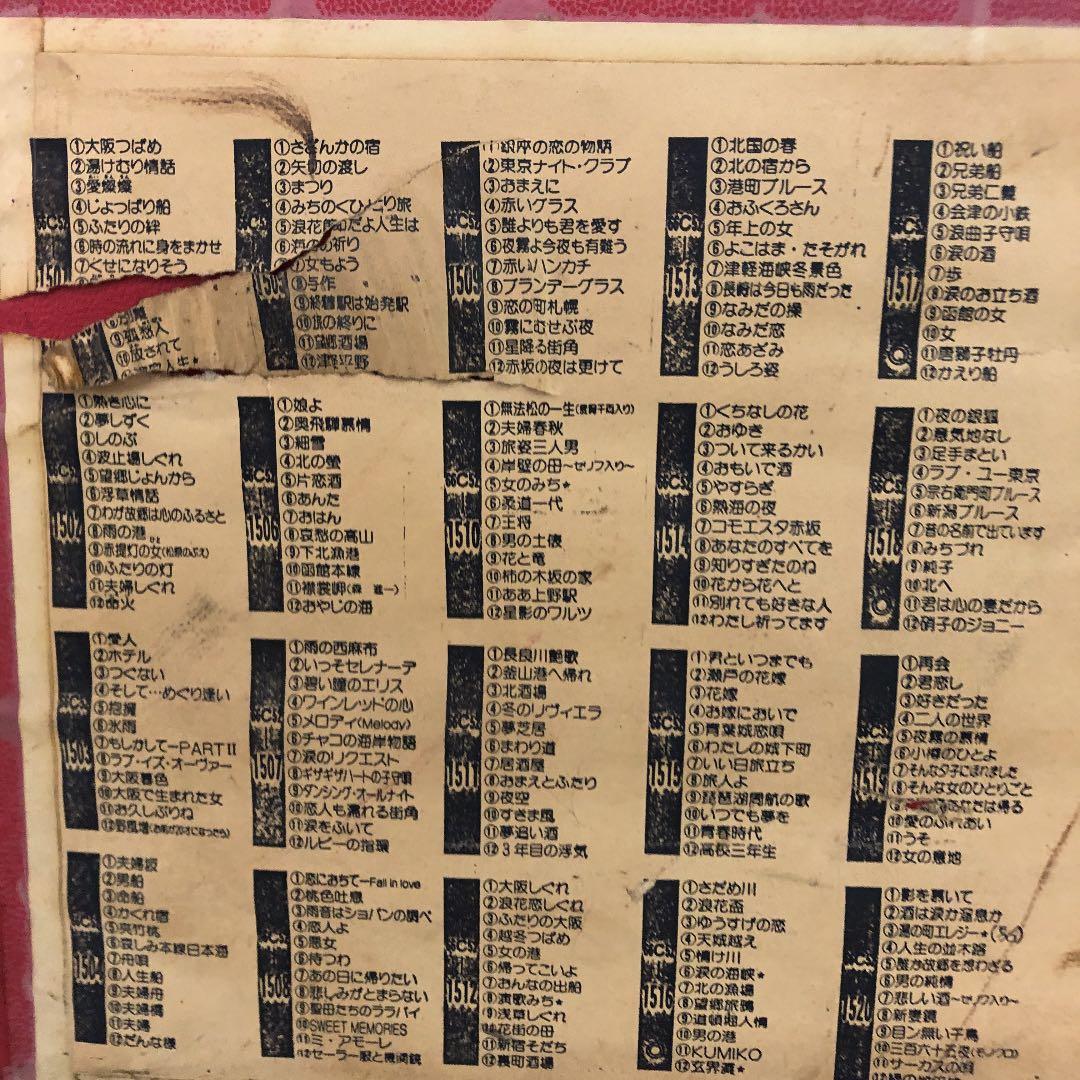 66CS.
1501
①大阪つばめ
②湯けむり情話
③愛燦燦
④じょっぱり船
⑤ふたりの絆
⑥時の流れに身をまかせ
⑦くせになりそう
⑨孤愁人
⑩放されて
66CS.
1502
①熱き心に
②夢しずく
③しのぶ
④波止場しぐれ
⑤望郷じょんから
⑥浮草情話
⑦わが故郷は心のふるさと
⑧雨の港
⑨赤提灯の女(松原のぶえ)
⑩ふたりの灯
⑪夫婦しぐれ
⑫命火
66CS.
1503
①愛人
②ホテル
③つぐない
④そして…めぐり逢い
⑤抱擁
⑥氷雨
⑦もしかしてーPARTⅡ
⑧ラブ・イズ・オーヴァー
⑨大阪暮色
⑩大阪で生まれた女
⑪お久しぶりね
⑫野風増(お前が20才になったら)
66CS.
1504
①夫婦坂
②男船
③命船
④かくれ宿
⑤呉竹桃
⑥哀しみ本線日本海
⑦舟唄
⑧人生船
⑨夫婦舟
⑩夫婦橋
⑪夫婦
⑫だんな様
66CS.
1505
①さざんかの宿
②矢切の渡し
③まつり
④みちのくひとり旅
⑤浪花節だよ人生は
⑥海の祈り
⑦女もよう
⑧与作
⑨終着駅は始発駅
⑩旅の終りに
⑪望郷酒場
⑫津軽平野
66CS.
1506
①娘よ
②奥飛騨慕情
③細雪
④北の螢
⑤片恋酒
⑥あんた
⑦おはん
⑧哀愁の高山
⑨下北漁港
⑩函館本線
⑪襟裳岬(森 進一)
⑫おやじの海
66CS.
1507
①雨の西麻布
②いっそセレナーデ
③碧い瞳のエリス
④ワインレッドの心
⑤メロディ(Melody)
⑥チャコの海岸物語
⑦涙のリクエスト
⑧ギザギザハートの子守唄
⑨ダンシング・オールナイト
⑩恋人も濡れる街角
⑪涙をふいて
⑫ルビーの指環
66CS.
1508
①恋におちてーFall in love
②桃色吐息
③雨音はショパンの調べ
④恋人よ
⑤悪女
⑥待つわ
⑦あの日に帰りたい
⑧悲しみがとまらない
⑨聖母たちのララバイ
⑩SWEET MEMORIES
⑪ミ・アモーレ
⑫セーラー服と機関銃
66CS.
1509
①銀座の恋の物語
②東京ナイト・クラブ
③おまえに
④赤いグラス
⑤誰よりも君を愛す
⑥夜霧よ今夜も有難う
⑦赤いハンカチ
⑧ブランデーグラス
⑨恋の町札幌
⑩霧にむせぶ夜
⑪星降る街角
⑫赤坂の夜は更けて
66CS.
1510
①無法松の一生(度胸千両入り)
②夫婦春秋
③旅姿三人男
④岸壁の母～セリフ入り～
⑤女のみち★
⑥柔道一代
⑦王将
⑧男の土俵
⑨花と竜
⑩柿の木坂の家
⑪ああ上野駅
⑫星影のワルツ
66CS.
1511
①長良川艶歌
②釜山港へ帰れ
③北酒場
④冬のリヴィエラ
⑤夢芝居
⑥まわり道
⑦居酒屋
⑧おまえとふたり
⑨夜空
⑩すきま風
⑪夢追い酒
⑫3年目の浮気
66CS.
1512
①大阪しぐれ
②浪花恋しぐれ
③ふたりの大阪
④越冬つばめ
⑤女の港
⑥帰ってこいよ
⑦おんなの出船
⑧演歌みち★
⑨浅草しぐれ
⑩花街の母
⑪新宿そだち
⑫裏町酒場
66CS.
1513
①北国の春
②北の宿から
③港町ブルース
④おふくろさん
⑤年上の女
⑥よこはま・たそがれ
⑦津軽海峡冬景色
⑧長崎は今日も雨だった
⑨なみだの操
⑩なみだ恋
⑪恋あざみ
⑫うしろ姿
66CS.
1514
①くちなしの花
②おゆき
③ついて来るかい
④おもいで酒
⑤やすらぎ
⑥熱海の夜
⑦コモエスタ赤坂
⑧あなたのすべてを
⑨知りすぎたのね
⑩花から花へと
⑪別れても好きな人
⑫わたし祈ってます
66CS.
1515
①君といつまでも
②瀬戸の花嫁
③花嫁
④お嫁においで
⑤青葉城恋唄
⑥わたしの城下町
⑦いい日旅立ち
⑧旅人よ
⑨琵琶湖周航の歌
⑩いつでも夢を
⑪青春時代
⑫高校三年生
66CS.
1516
①さだめ川
②浪花盃
③ゆうすげの恋
④天城越え
⑤情け川
⑥涙の海峡★
⑦北の漁場
⑧望郷旅鴉
⑨道頓堀人情
⑩男の港
⑪KUMIKO
⑫玄界灘★
66CS.
1517
①祝い船
②兄弟船
③兄弟仁義
④会津の小鉄
⑤浪曲子守唄
⑥涙の酒
⑦歩
⑧涙のお立ち酒
⑨函館の女
⑩女
⑪唐獅子牡丹
⑫かえり船
66CS.
1518
①夜の銀狐
②意気地なし
③足手まとい
④ラブ・ユー東京
⑤宗右衛門町ブルース
⑥新潟ブルース
⑦昔の名前で出ています
⑧みちづれ
⑨純子
⑩北へ
⑪君は心の妻だから
⑫硝子のジョニー
66CS.
1519
①再会
②君恋し
③好きだった
④二人の世界
⑤夜霧の慕情
⑥小樽のひとよ
⑦そんな夕子にほれました
⑧そんな女のひとりごと
⑨あなたは帰る
⑩愛のふれあい
⑪うそ
⑫女の意地
66CS.
1520
①影を慕いて
②酒は涙か溜息か
③湯の町エレジー★(56)
④人生の並木路
⑤誰か故郷を想わざる
⑥男の純情
⑦悲しい酒～セリフ入り～
⑧新妻鏡
⑨目ン無い千鳥
⑩三百六十五夜(モノクロ)
⑪サーカスの唄